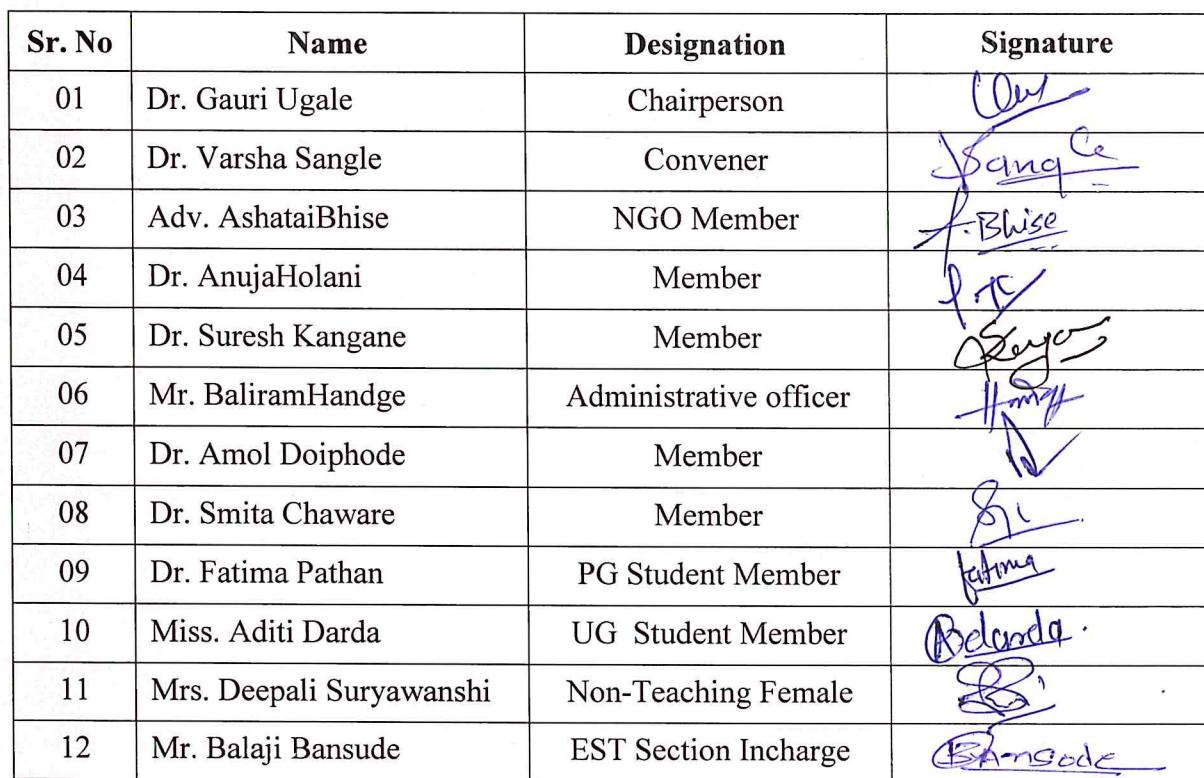 Sr. No Name Designation Signature
01 Dr. Gauri Ugale Chairperson
02 Dr. Varsha Sangle Convener Sangle
03 Adv. AshataiBhise NGO Member A. Bhise
04 Dr. AnujaHolani Member
05 Dr. Suresh Kangane Member
06 Mr. BaliramHandge Administrative officer
07 Dr. Amol Doiphode Member
08 Dr. Smita Chaware Member
09 Dr. Fatima Pathan PG Student Member fatima
10 Miss. Aditi Darda UG Student Member
11 Mrs. Deepali Suryawanshi Non-Teaching Female
12 Mr. Balaji Bansude EST Section Incharge BAnsode